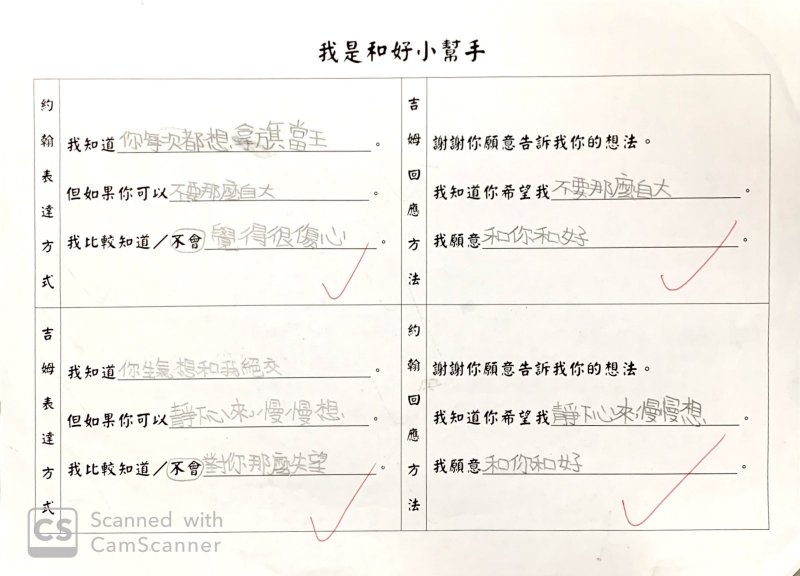 我是和好小幫手
約翰表達方式
我知道你每次都想拿旗當王。
但如果你可以不要那麼自大。
我比較知道/不會覺得很傷心。
吉姆回應方法
謝謝你願意告訴我你的想法。
我知道你希望我不要那麼自大。
我願意和你和好。
吉姆表達方式
我知道你生氣想和我絕交。
但如果你可以靜下心來慢慢想。
我比較知道/不會對你那麼失望。
約翰回應方法
謝謝你願意告訴我你的想法。
我知道你希望我靜下心來慢慢想。
我願意和你和好。
CS Scanned with
CamScanner